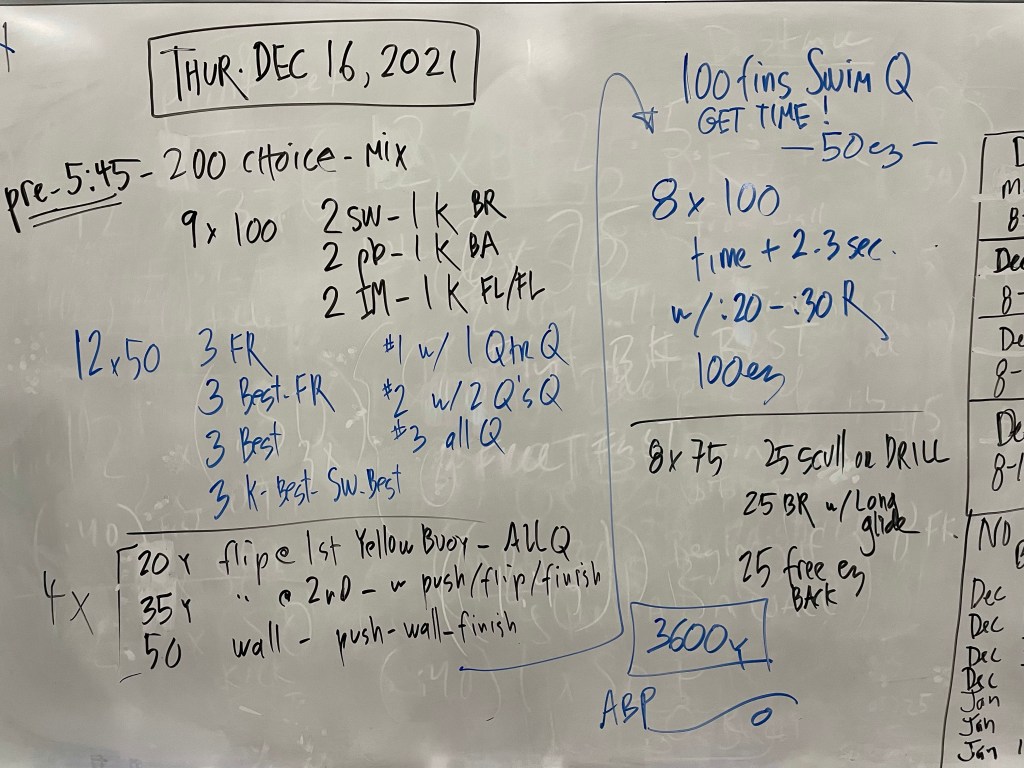 THUR. DEC 16, 2021
pre-5:45 - 200 CHOICE - MIX
9 x 100 2 SW - 1 K BR
2 pb - 1 K BA
2 IM - 1 K FL/FL
12x50 3 FR #1 w/ 1 Qtr Q
3 Best-FR #2 w/ 2 Q's Q
3 Best #3 all Q
3 K-Best-Sw.Best
4x
20 Y flip @ 1st Yellow Buoy - ALL Q
35 Y " @ 2ND - w push/flip/finish
50 wall - push-wall-finish
100 fins Swim Q
GET TIME!
- 50 ez -
8 x 100
time + 2.3 sec.
w/ :20 - :30 R
100 ez
8 x 75 25 scull or DRILL
25 BR w/ Long
glide
25 free ez
BACK
3600y
ABP
D
m
8-
Dec
8-
De
8-
De
8-1
NO
Dec
Dec
Dec
Dec
Jan
Jan
Jan 1